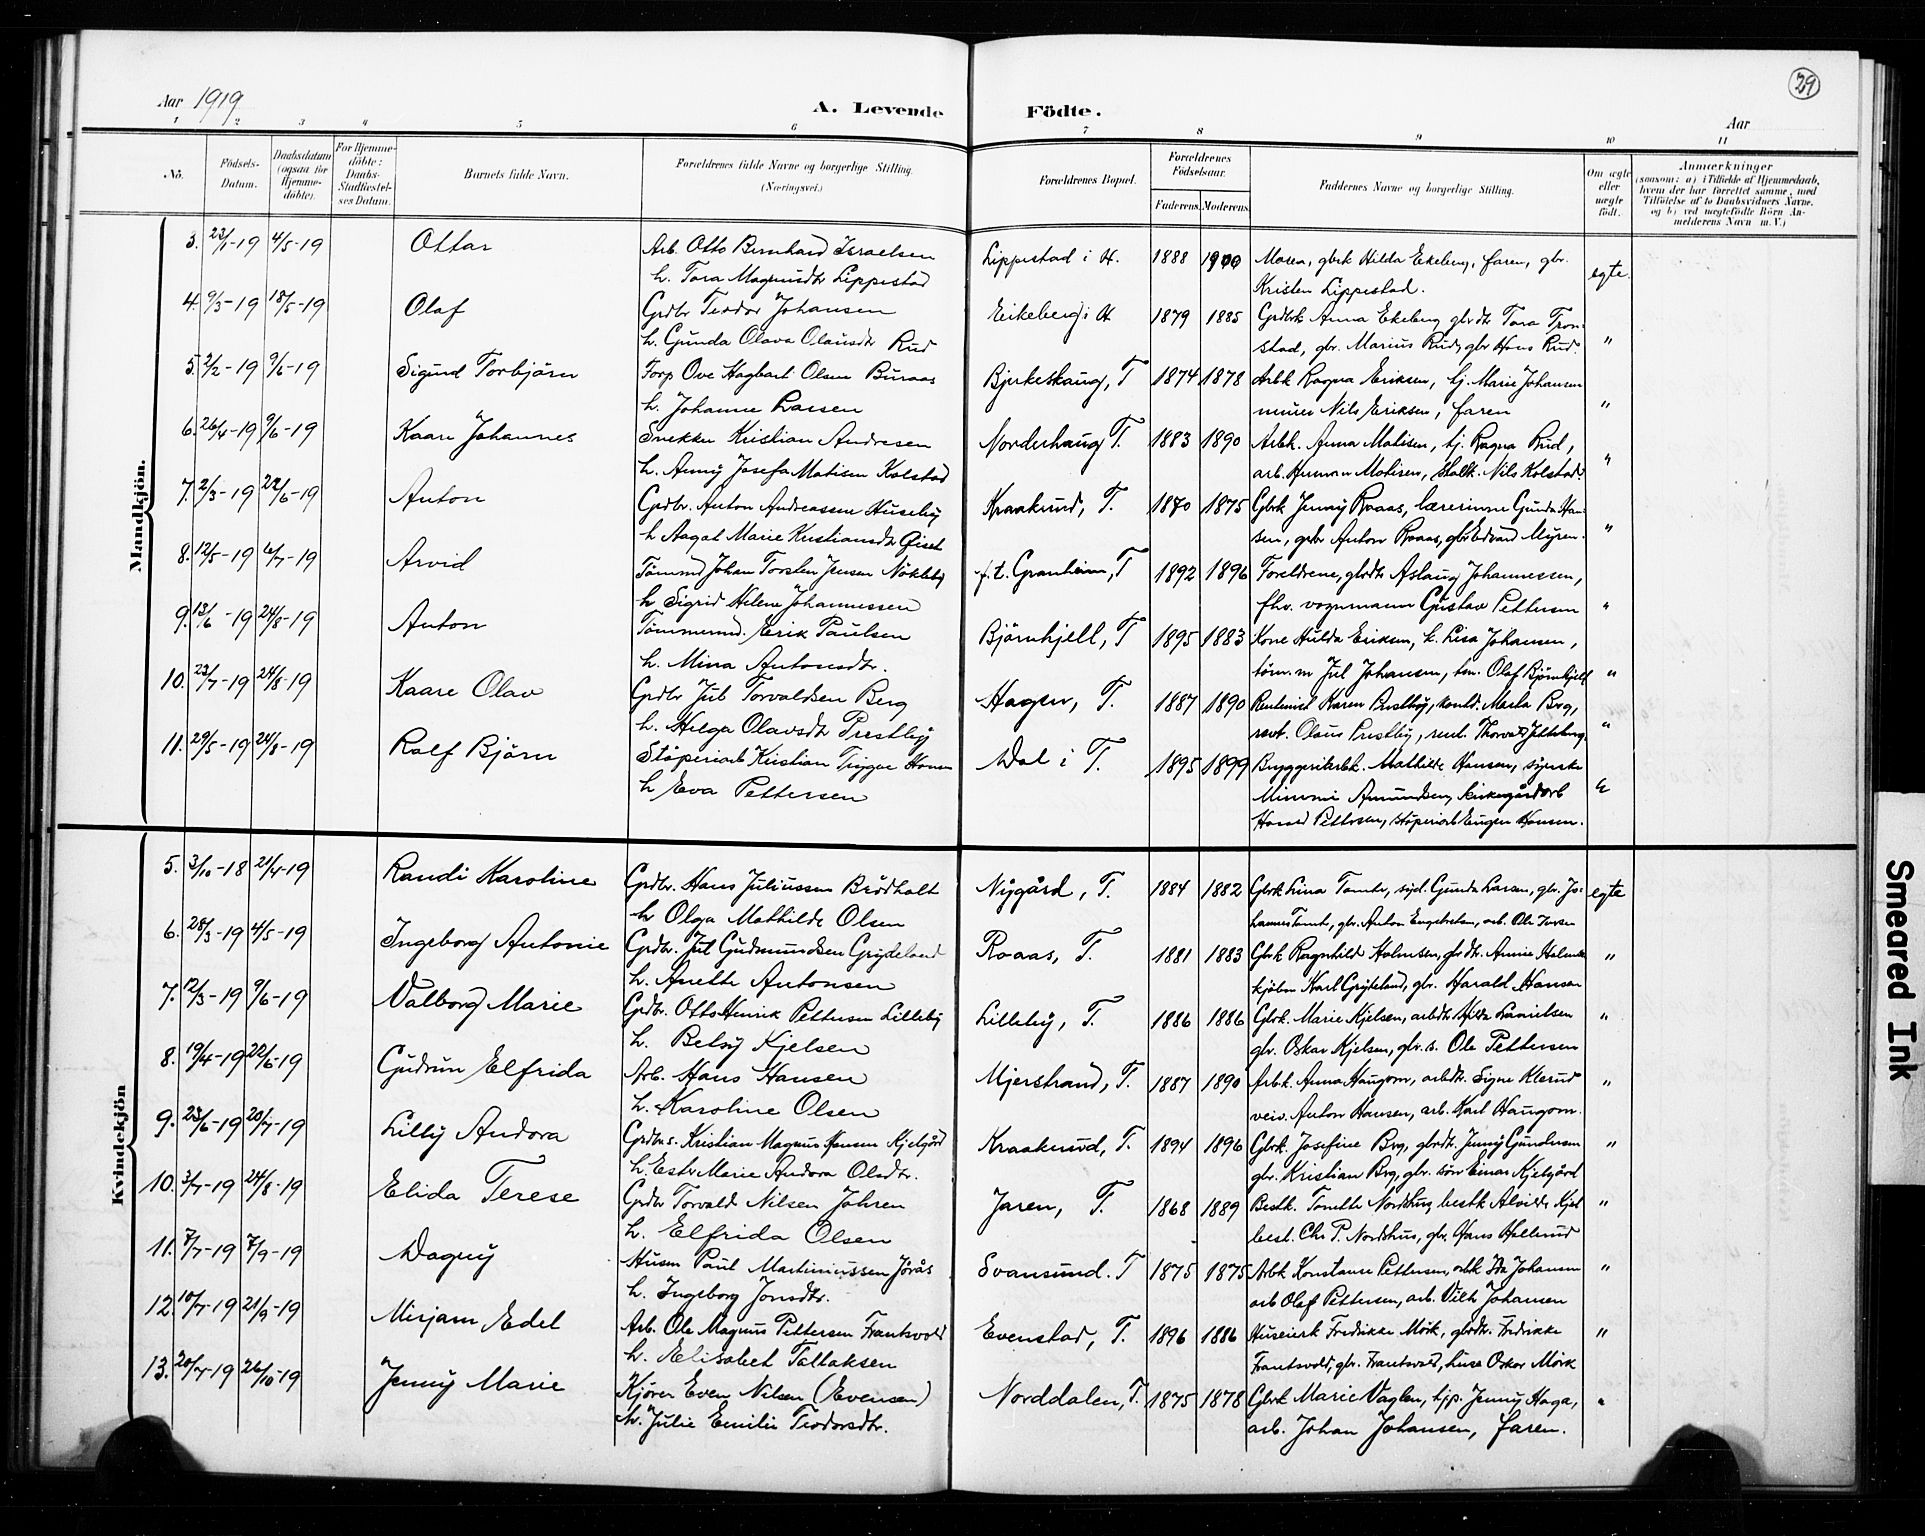 29
Aar 1919
A. Levende Födte.
Aar
1 2 3 4 5 6 7 8 9 10 11
Nö.
Födsels-Datum.
Daabsdatum (ogsaa for Hjemmedöbte).
For Hjemmedöbte: Daabs-Stadfæstelses Datum.
Barnets fulde Navn.
Forældrenes fulde Navne og borgerlige Stilling. (Næringsvei.)
Forældrenes Bopæl.
Forældrenes Födselsaar.
Faderens. Moderens.
Faddernes Navne og borgerlige Stilling.
Om ægte eller uægte födt.
Anmærkninger
(saasom: a) i Tilfælde af Hjemmedaab,
hvem der har forrettet samme, med
Tilföielse af to Daabsvidners Navne,
og b) ved uægtefödte Börn An-
melderens Navn m. V.)
Mandkjön.
3. 23/1-19 4/5-19 Ottar Arb. Otto Bernhard Israelsen Lippestad i H. 1888 1900 Maren, gbrk Hilda Ekeberg, faren, gbr. egte.
h. Tora Magnusdtr Lippestad Kristen Lippestad.
4. 9/3-19 18/5-19 Olaf Grdbr Teodor Johansen Eikeberg i H 1879 1885 Grdbrk Anna Ekeberg gbrdtr Tora Tron- "
h. Gunda Olava Olausdtr Rud stad, gbr. Marius Rud, gbr Hans Rud.
5. 2/2-19 9/6-19 Sigurd Torbjörn Forp Ove Hagbart Olsen Buraas Bjerkeskaug, T 1874 1878 Arbk Ragna Eriksen, tj. Marie Johansen "
h. Johanne Larsen murer Nils Eriksen, faren
6. 26/4-19 9/6-19 Kaare Johannes Snekker Kristian Andresen Norderhaug T. 1883 1890 Arbk. Anna Matisen, tj. Ragna Rud, "
h. Anny Josefa Matisen Kolstad arb. Herman Matisen, Nils Kolstad.
7. 2/3-19 22/6-19 Anton Grdbr. Anton Andreassen Huseby Kraakerud, T. 1870 1875 Gbrk Jenny Roaas, lærerinne Gunda Han- "
h Aagat Marie Kristiansdtr Giset sen, grbr Anton Roaas, gbr Edvard Myren.
8. 12/5-19 6/7-19 Arvid Tömmerm Johan Torsten Jensen Nökleby f.t. Granheim, T 1892 1896 Foreldrene, gbrdtr Aslaug Johannessen, "
h Sigrid Helene Johannessen fhv. vognmann Gustav Pettersen
9. 13/6-19 24/8-19 Anton Tömmermd. Erik Paulsen Björnhjell, T 1895 1883 Kone Hulda Eriksen, k. Lisa Johansen, "
h. Mina Antonsdtr. töm.m Jul Johansen, tm. Olaf Björnhjell
10. 23/7-19 24/8-19 Kaare Olav Grdbr Jul Torvaldsen Berg Hagen, T. 1887 1890 Karen Prestby, Marta Brg, "
h. Helga Olavsdtr Prestby Olaus Prestby, Thorvald
11. 29/5-19 24/8-19 Rolf Björn Stöperiarb Kristian Trygve Hansen Dal i T. 1895 1899 Bryggeriarbk. Mathilde Hansen, syerske "
h Eva Pettersen Mimmi Amundsen, kirkegårdarb
Harald Pettersen, stöperiarb Eugen Hansen.
Kvindekjön
5. 3/10-18 21/4-19 Randi Karoline Grdbr. Hans Juliussen Brödholt Nygård, T. 1884 1882 Gbrk Lina Tomter, syd. Gunda Larsen, gbr. Jo- egte
h Olga Mathilde Olsen hannes Tomter, gbr. Anton Engebretsen, arb. Ole Iversen
6. 28/3-19 4/5-19 Ingeborg Antonie Grdbr. Jul Gudmundsen Gryteland Roaas, T. 1881 1883 Gbrk Ragnhilde Holmsen, gbrdtr. Annie "
h. Anette Antonsen kjöbm Karl Gryteland, gbr. Harald Hansen
7. 12/3-19 9/6-19 Valborg Marie Grdbr. Otto Henrik Pettersen Lilleby Lilleby, T. 1886 1886 Gbrk. Marie Kjelsen, arbdtr Hilda "
h. Betsy Kjelsen gbr. Oskar Kjelsen, gbr.s. Ole Pettersen
8. 19/4-19 22/6-19 Gudrun Elfrida Arb. Hans Hansen Mjerstrand, T. 1887 1890 Arbk. Anna Haugom, arbdtr. Signe Klerud "
h. Karoline Olsen veiv. Anton Hansen, arb. Karl Haugom.
9. 23/6-19 20/7-19 Lilly Andora Grdbrs. Kristian Magnus Hansen Kjelgård Kraakerud, T. 1894 1896 Gbrk. Josefine Brg, gbrdtr. Jenny Gundersen "
h Ester Marie Andora Olsdtr. gbr. Kristian Brg, gbr. sön Einar Kjelgård
10. 3/7-19 24/8-19 Elida Terese Grdbr Torvald Nilsen Jahren Jaren, T. 1868 1889 Bestk. Tomette Nordshus, bestk Alvilde Kjel "
h. Elfrida Olsen best. Chr P. Nordshus, gbr. Hans Hellerud
11. 7/7-19 7/9-19 Dagny Husm Paul Martiniussen Jörås Svansund. T 1875 1875 Arbk Konstanse Pettersen, arbk Ida Johansen "
h. Ingeborg Jonsdtr. arb Olaf Pettersen, arb. Vilh Johansen
12. 10/7-19 21/9-19 Mirjam Edel Arb. Ole Magnus Pettersen Frantsvold Evenstad, T. 1896 1886 Huseierk Fredrikke Mörk, gbrdtr. Fredrikke "
h. Elisabet Tallaksen Frantsvold, gbr. Frantsvold, huse Oskar Mörk
13. 20/7-19 26/10-19 Jenny Marie Kjörer Even Nilsen (Evensen) Norddalen, T. 1875 1878 Gbrk Marie Vaglen, tjp. Jenny Haga, "
h. Julie Emilie Teodorsdtr. arb. Johan Johansen, faren.
Smeared Ink